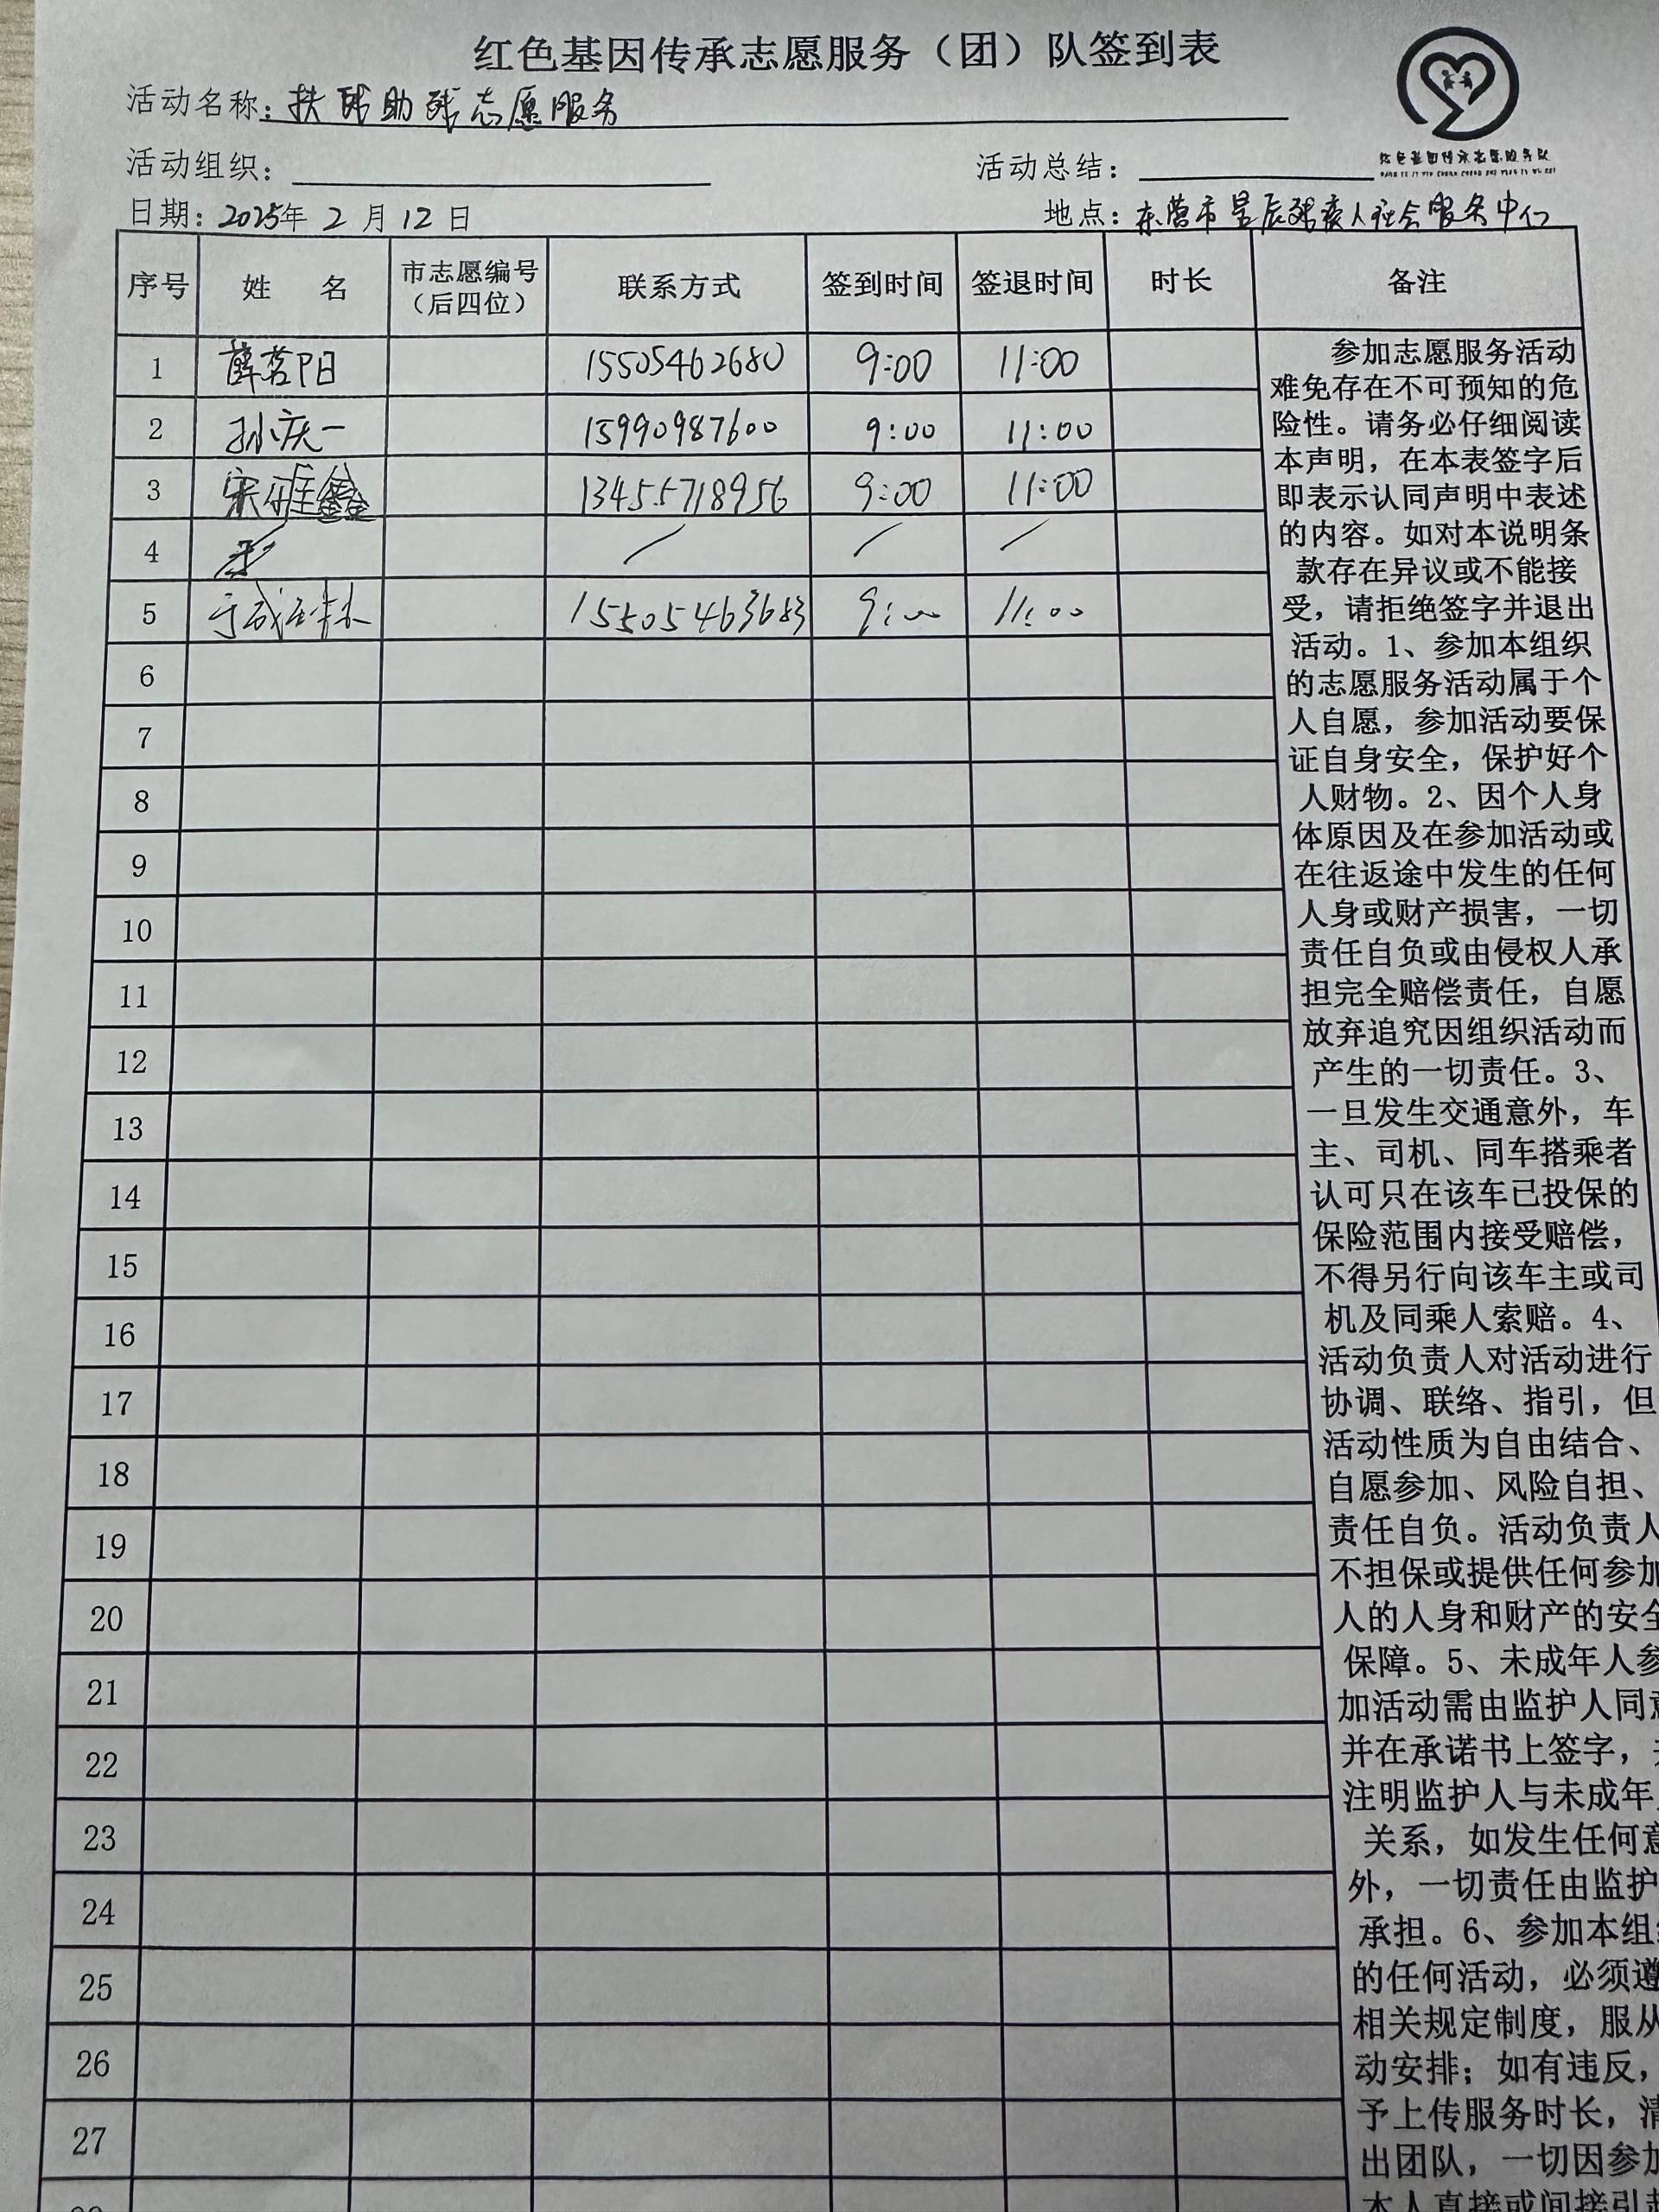 红色基因传承志愿服务（团）队签到表
活动名称：扶残助残志愿服务
活动组织：
活动总结：
红色基因传承志愿服务队
日期：2025年 2 月 12 日
地点：东营市星辰残疾人社会服务中心
序号 姓 名 市志愿编号（后四位） 联系方式 签到时间 签退时间 时长 备注
1 薛茗阳 15505462680 9:00 11:00
2 孙庆一 15990987600 9:00 11:00
3 宋雅鑫 13455718956 9:00 11:00
4
5 15505463683 9:00 11:00
6
7
8
9
10
11
12
13
14
15
16
17
18
19
20
21
22
23
24
25
26
27
参加志愿服务活动
难免存在不可预知的危
险性。请务必仔细阅读
本声明，在本表签字后
即表示认同声明中表述
的内容。如对本说明条
款存在异议或不能接
受，请拒绝签字并退出
活动。1、参加本组织
的志愿服务活动属于个
人自愿，参加活动要保
证自身安全，保护好个
人财物。2、因个人身
体原因及在参加活动或
在往返途中发生的任何
人身或财产损害，一切
责任自负或由侵权人承
担完全赔偿责任，自愿
放弃追究因组织活动而
产生的一切责任。3、
一旦发生交通意外，车
主、司机、同车搭乘者
认可只在该车已投保的
保险范围内接受赔偿，
不得另行向该车主或司
机及同乘人索赔。4、
活动负责人对活动进行
协调、联络、指引，但
活动性质为自由结合、
自愿参加、风险自担、
责任自负。活动负责人
不担保或提供任何参加
人的人身和财产的安全
保障。5、未成年人参
加活动需由监护人同意
并在承诺书上签字，
注明监护人与未成年
关系，如发生任何意
外，一切责任由监护
承担。6、参加本组
的任何活动，必须遵
相关规定制度，服从
动安排；如有违反，
予上传服务时长，清
出团队，一切因参加
本人直接或间接引起